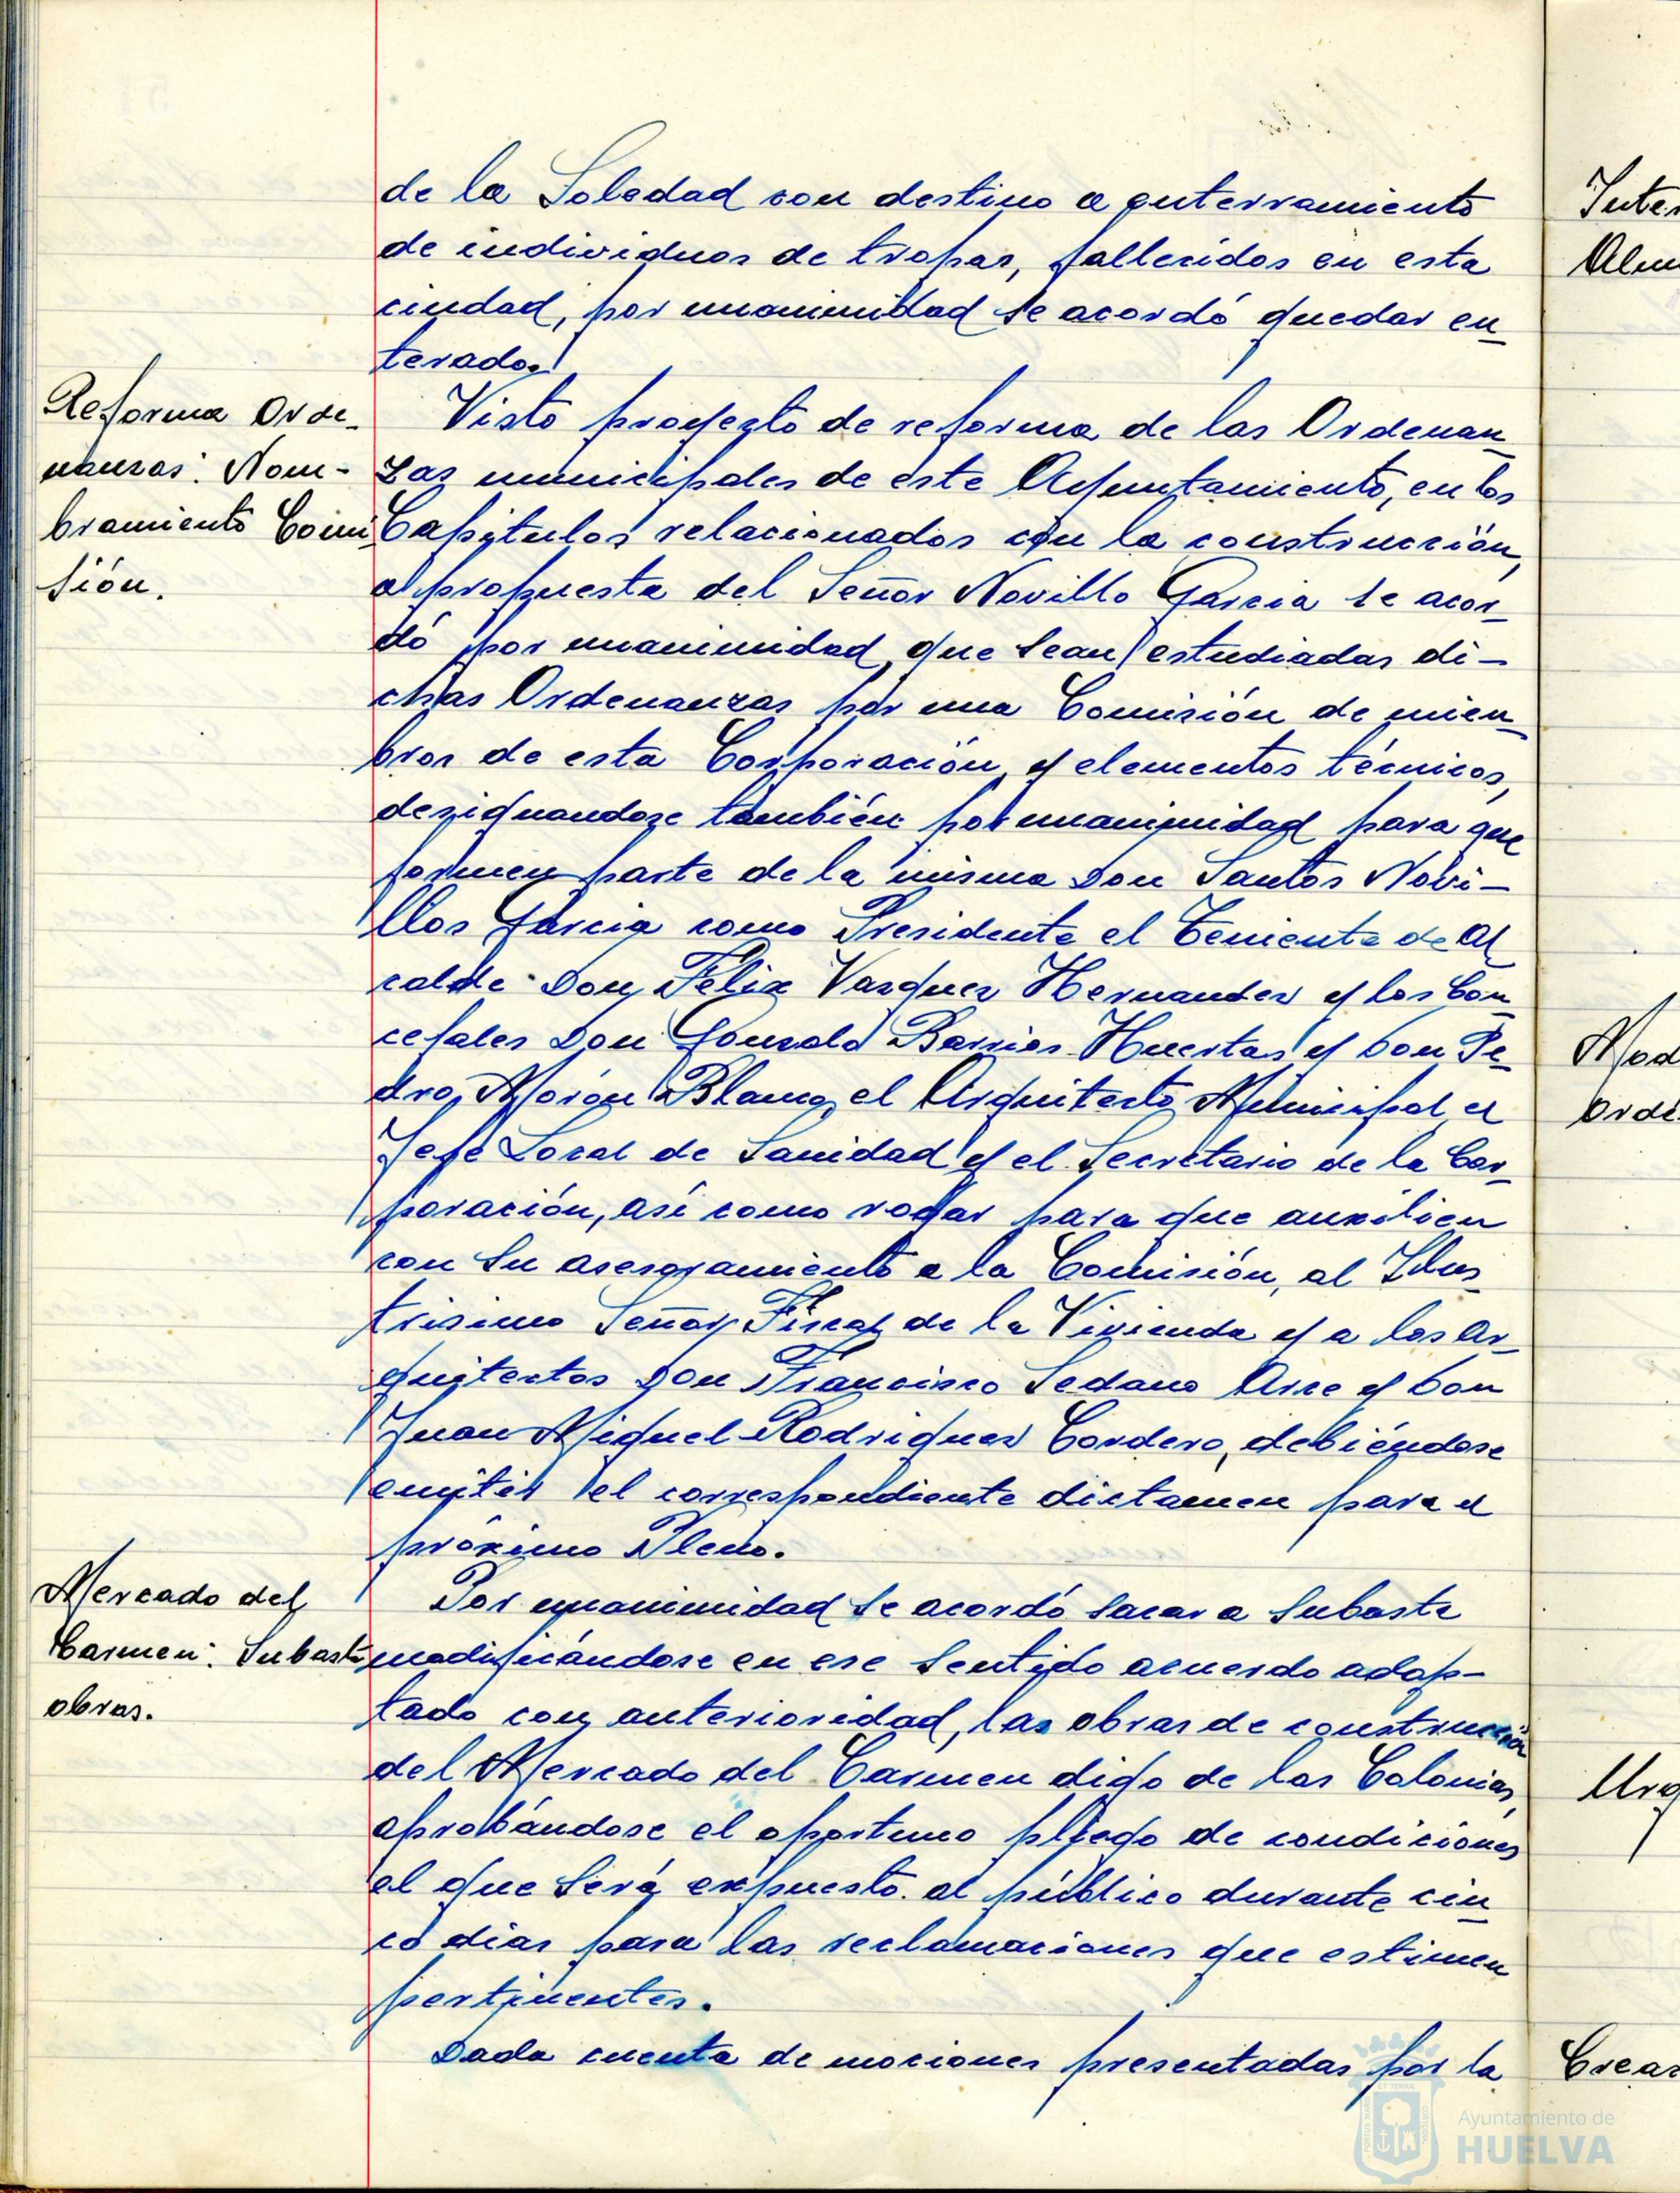 de la Soledad con destino a enterramiento
de individuos de tropas, fallecidos en esta
ciudad, por unanimidad se acordó quedar en
terado.
Reforma Orde-
nanzas: Nom-
bramiento Comi
sión.
Visto proyecto de reforma de las Ordenan
zas municipales de este Ayuntamiento, en los
Capitulos relacionados con la construcción,
a propuesta del Señor Novillo Garcia se acor
dó por unanimidad que sean estudiadas di-
chas Ordenanzas por una Comisión de miem
bros de esta Corporación y elementos técnicos,
designandose también por unanimidad para que
formen parte de la misma Don Santos Novi-
llos Garcia como Presidente el Teniente de Al
calde Don Felix Vazquez Hernandez y los Con
cejales Don Gonzalo Barrios Huertas y Don Pe
dro Morón Blanco, el Arquitecto Municipal, el
Jefe Local de Sanidad y el Secretario de la Cor
poración, así como rogar para que auxilien
con su asesoramiento a la Comisión, al Ilus
trisimo Señor Fiscal de la Vivienda y a los Ar
quitectos Don Francisco Sedano Arce y Don
Juan Miguel Rodriguez Cordero, debiéndose
emitir el correspondiente dictamen para el
próximo Pleno.
Mercado del
Carmen: Subasta
obras.
Por unanimidad se acordó sacar a subasta
modificándose en ese sentido acuerdo adop-
tado con anterioridad, las obras de construcción
del Mercado del Carmen digo de las Colonias,
aprobándose el oportuno pliego de condiciones
el que será expuesto al público durante cin
co dias para las reclamaciones que estimen
pertinentes.
Dada cuenta de mociones presentadas por la
Inter
Mod
Orde
Urg
Crear
Ayuntamiento de
HUELVA